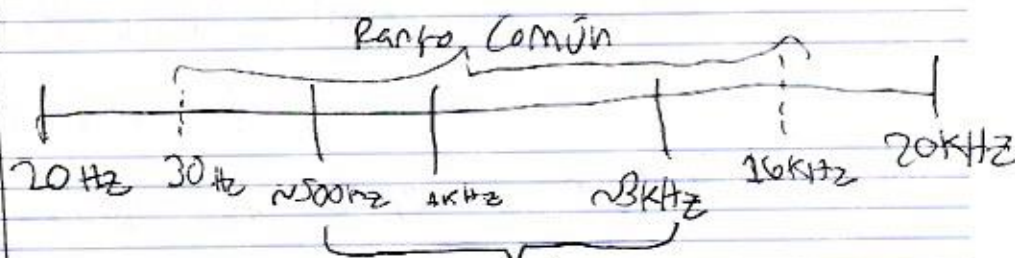 Rango Común
20 Hz 30 Hz ~500Hz 1KHz ~3KHz 16KHz 20KHz